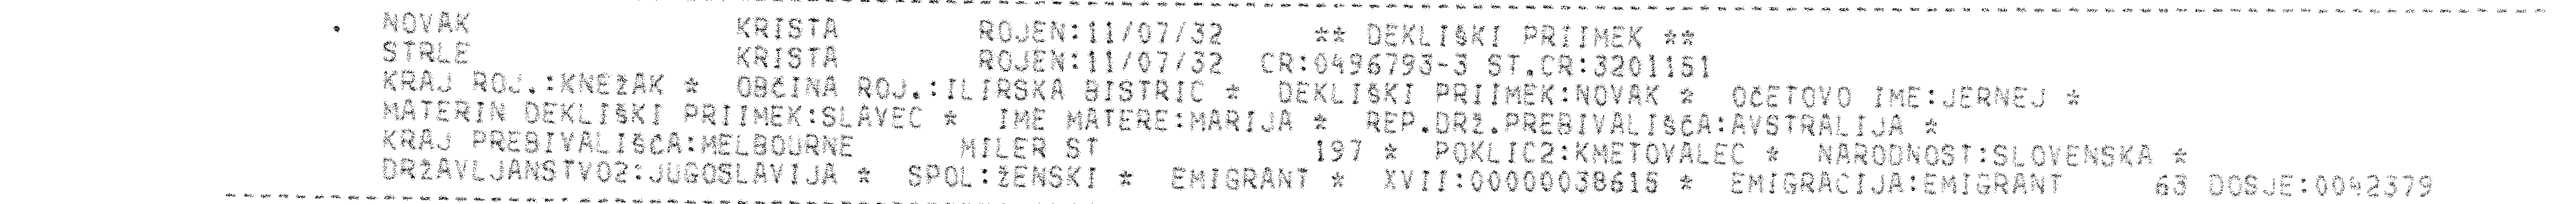 NOVAK KRISTA ROJEN:11/07/32 ** DEKLIŠKI PRIIMEK **
STRLE KRISTA ROJEN:11/07/32 CR:0496793-3 ST.CR:3201151
KRAJ ROJ.:KNEŽAK * OBČINA ROJ.:ILIRSKA BISTRIC * DEKLIŠKI PRIIMEK:NOVAK * OČETOVO IME:JERNEJ *
MATERIN DEKLIŠKI PRIIMEK:SLAVEC * IME MATERE:MARIJA * REP.DRŽ.PREBIVALIŠČA:AVSTRALIJA *
KRAJ PREBIVALIŠČA:MELBOURNE MILER ST 197 * POKLIC2:KMETOVALEC * NARODNOST:SLOVENSKA *
DRŽAVLJANSTVO2:JUGOSLAVIJA * SPOL:ŽENSKI * EMIGRANT * XVII:00000038615 * EMIGRACIJA:EMIGRANT 63 DOSJE:0042379